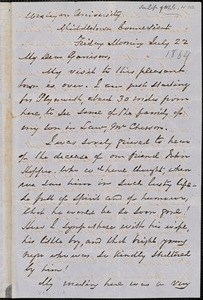 Wesleyan University
Middletown Connecticut
Friday Morning July 22
1864
My dear Garrison,
My visit to this pleasant
town is over. I am just starting
for Plymouth, about 30 miles from
here, to see some of the family of
my son in Law, Mr Chesson.
I was sorely grieved to hear
of the decease of our friend John
who wd have thought, when
we saw him in such lusty life
full of Spirit and of humour,
that he would be so soon gone!
How I sympathise with his wife,
his little boy, and that bright young
negro who was so kindly sheltered
by him!
My meeting here was a very